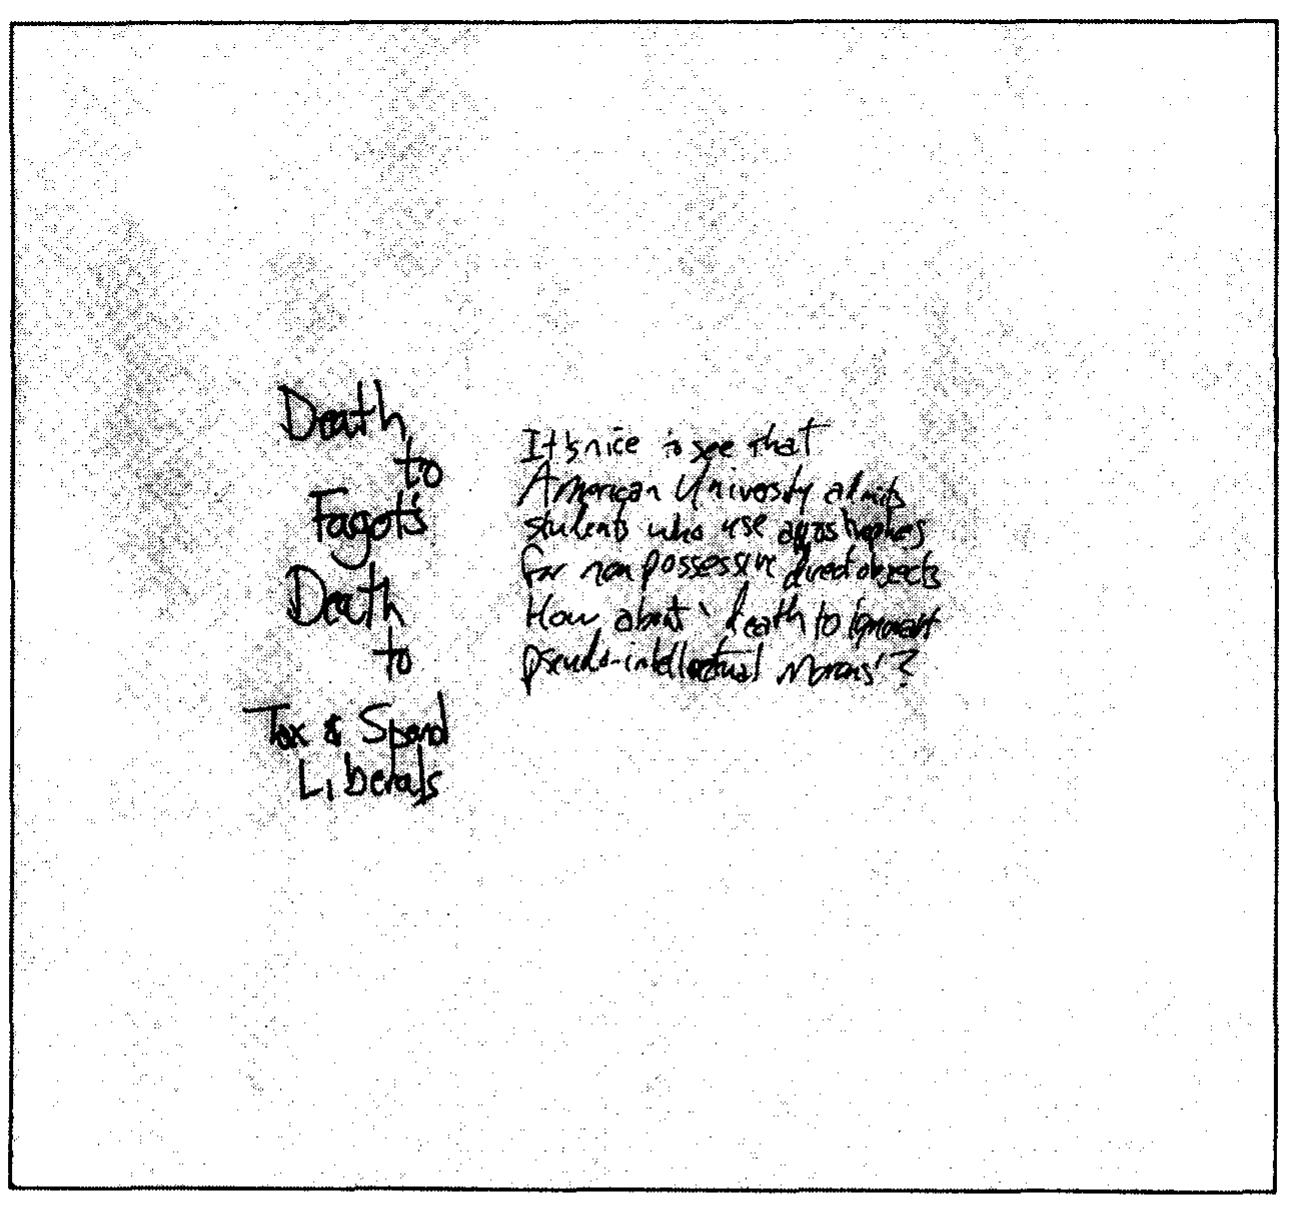 Death
to
Fagot's
Death
to
Tax & Spend
Liberals
It's nice to see that
American University admits
students who use apostrophes
for non possessive direct objects
How about 'death to ignorant
pseudo-intellectual morons'?